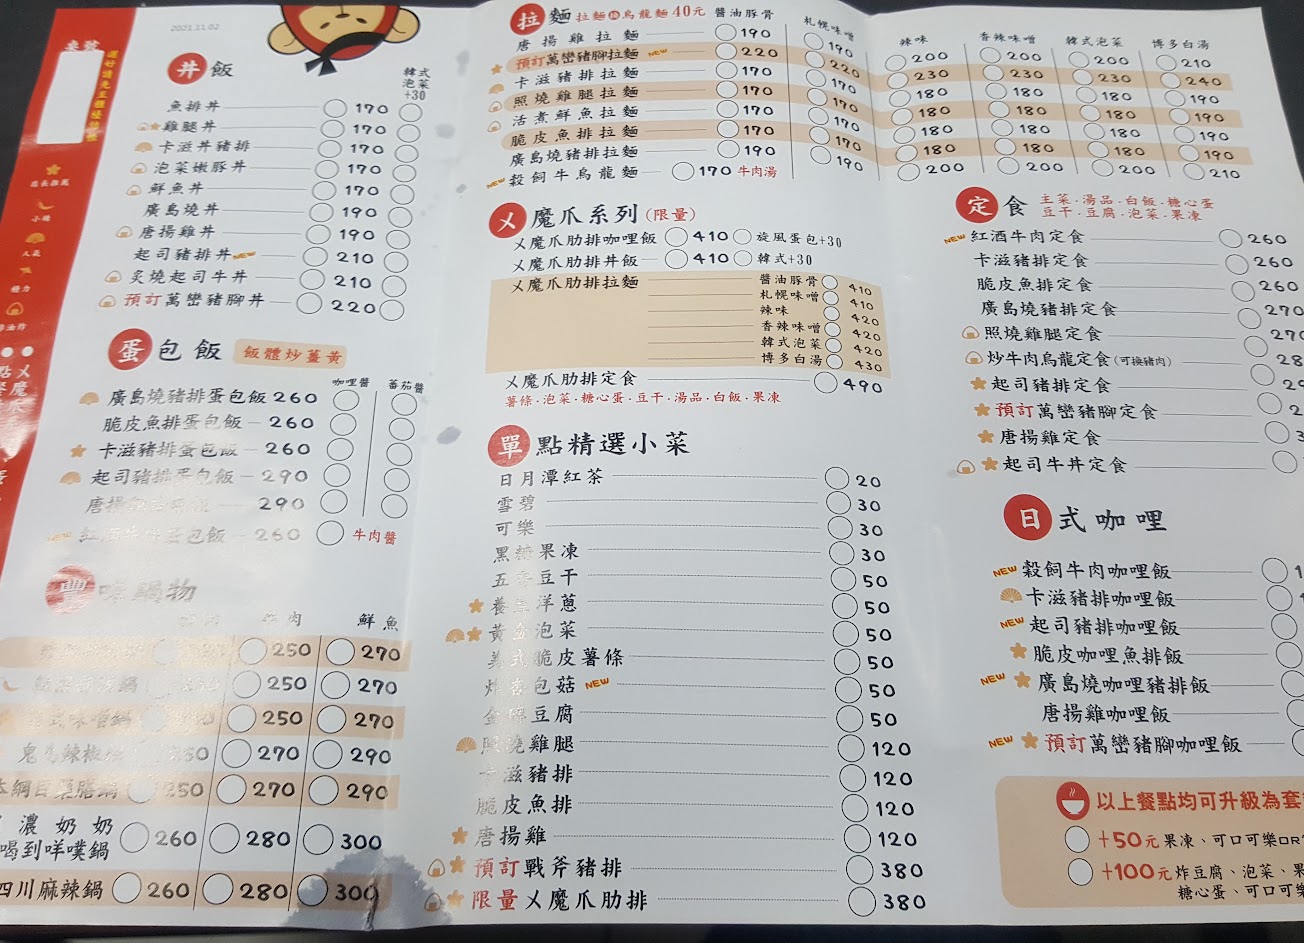 桌號
還好請先至櫃檯結帳
2021.11.02
店長推薦
小辣
人氣
極力
丼飯
韓式泡菜+30
魚排丼 170
雞腿丼 170
卡滋丼豬排 170
泡菜嫩豚丼 170
鮮魚丼 170
廣島燒丼 190
唐揚雞丼 190
起司豬排丼 NEW 210
炙燒起司牛丼 210
預訂萬巒豬腳丼 220
蛋包飯 飯體炒薑黃
咖哩醬 蕃茄醬
廣島燒豬排蛋包飯 260
脆皮魚排蛋包飯 260
卡滋豬排蛋包飯 260
起司豬排蛋包飯 290
唐揚 290
NEW 蛋包飯 260 牛肉醬
豐味鍋物
鮮魚
250 270
鍋 250 270
味噌鍋 250 270
270 290
本綱目藥膳鍋 250 270 290
濃奶奶
喝到咩噗鍋 260 280 300
四川麻辣鍋 260 280 300
拉麵 拉麵換烏龍麵40元
醬油豚骨 札幌味噌 辣味 香辣味噌 韓式泡菜 博多白湯
唐揚雞拉麵 190 190 200 200 200 210
預訂萬巒豬腳拉麵 NEW 220 220 230 230 230 240
卡滋豬排拉麵 170 170 180 180 180 190
照燒雞腿拉麵 170 170 180 180 180 190
活煮鮮魚拉麵 170 170 180 180 180 190
脆皮魚排拉麵 170 170 180 180 180 190
廣島燒豬排拉麵 190 190 200 200 200 210
NEW 穀飼牛烏龍麵 170 牛肉湯
乂魔爪系列(限量)
乂魔爪肋排咖哩飯 410 旋風蛋包+30
乂魔爪肋排丼飯 410 韓式+30
乂魔爪肋排拉麵 醬油豚骨 410
札幌味噌 410
辣味 420
香辣味噌 420
韓式泡菜 420
博多白湯 430
乂魔爪肋排定食 490
薯條.泡菜.糖心蛋.豆干.湯品.白飯.果凍
單點精選小菜
日月潭紅茶 20
雪碧 30
可樂 30
黑糖果凍 30
五香豆干 50
養生洋蔥 50
黃金泡菜 50
美式脆皮薯條 50
炸杏包菇 NEW 50
豆腐 50
照燒雞腿 120
卡滋豬排 120
脆皮魚排 120
唐揚雞 120
預訂戰斧豬排 380
限量乂魔爪肋排 380
定食 主菜.湯品.白飯.糖心蛋
豆干.豆腐.泡菜.果凍
NEW 紅酒牛肉定食 260
卡滋豬排定食 260
脆皮魚排定食 260
廣島燒豬排定食 270
照燒雞腿定食 270
炒牛肉烏龍定食(可換豬肉) 28
起司豬排定食 29
預訂萬巒豬腳定食 2
唐揚雞定食 3
起司牛丼定食
日式咖哩
NEW 穀飼牛肉咖哩飯 1
卡滋豬排咖哩飯
NEW 起司豬排咖哩飯
脆皮咖哩魚排飯
NEW 廣島燒咖哩豬排飯
唐揚雞咖哩飯
NEW 預訂萬巒豬腳咖哩飯
以上餐點均可升級為套
+50元 果凍、可口可樂OR
+100元 炸豆腐、泡菜、果
糖心蛋、可口可樂